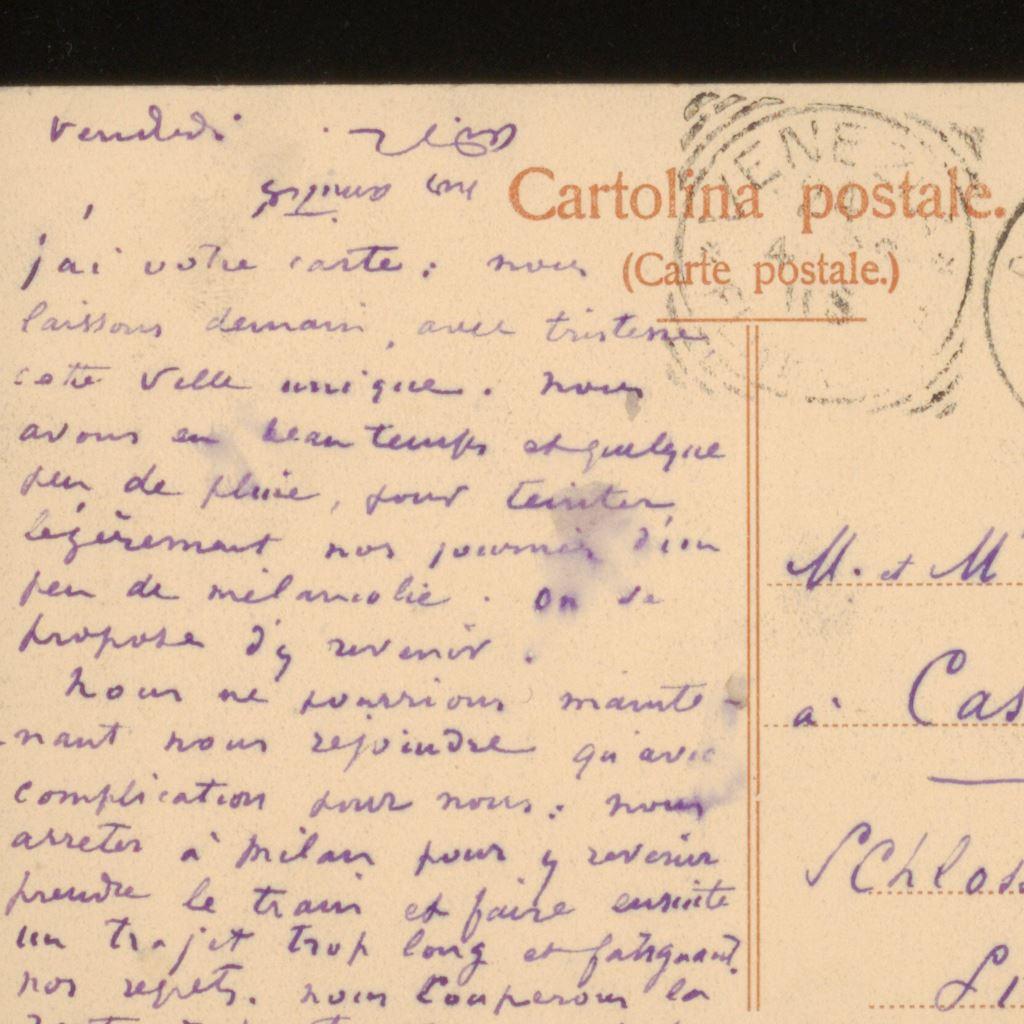 Vendredi
nos amitiés
j'ai votre carte : nous
laissons demain, avec tristesse
cette ville unique. nous
avons eu beau temps et quelque
peu de pluie, pour teinter
légèrement nos journées d'un
peu de mélancolie. On se
propose d'y revenir.
Nous ne pourrions mainte-
nant nous rejoindre qu'avec
complication pour nous : nous
arreter à Milan pour y revenir
prendre le train et faire ensuite
un trajet trop long et fatiguant.
nos regrets. nous couperons la
Cartolina postale.
(Carte postale.)
VENEZ
4
M. et M
à Cas
Schloss